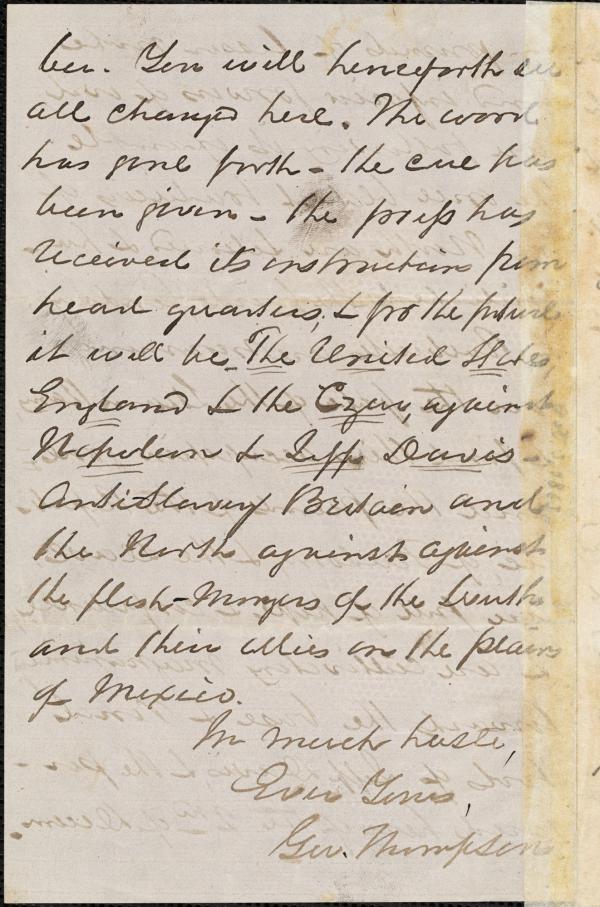 ber. You will henceforth see
all changed here. The word
has gone forth - the cue has
been given - the press has
received its instructions from
head quarters, & for the future
it will be The United States,
England & the Czar, against
Napoleon & Jeff Davis -
Anti Slavery Britain and
the North against against
the flesh-mongers of the South
and their allies on the plains
of Mexico.
In much haste,
Ever Yours,
Geo. Thompson.